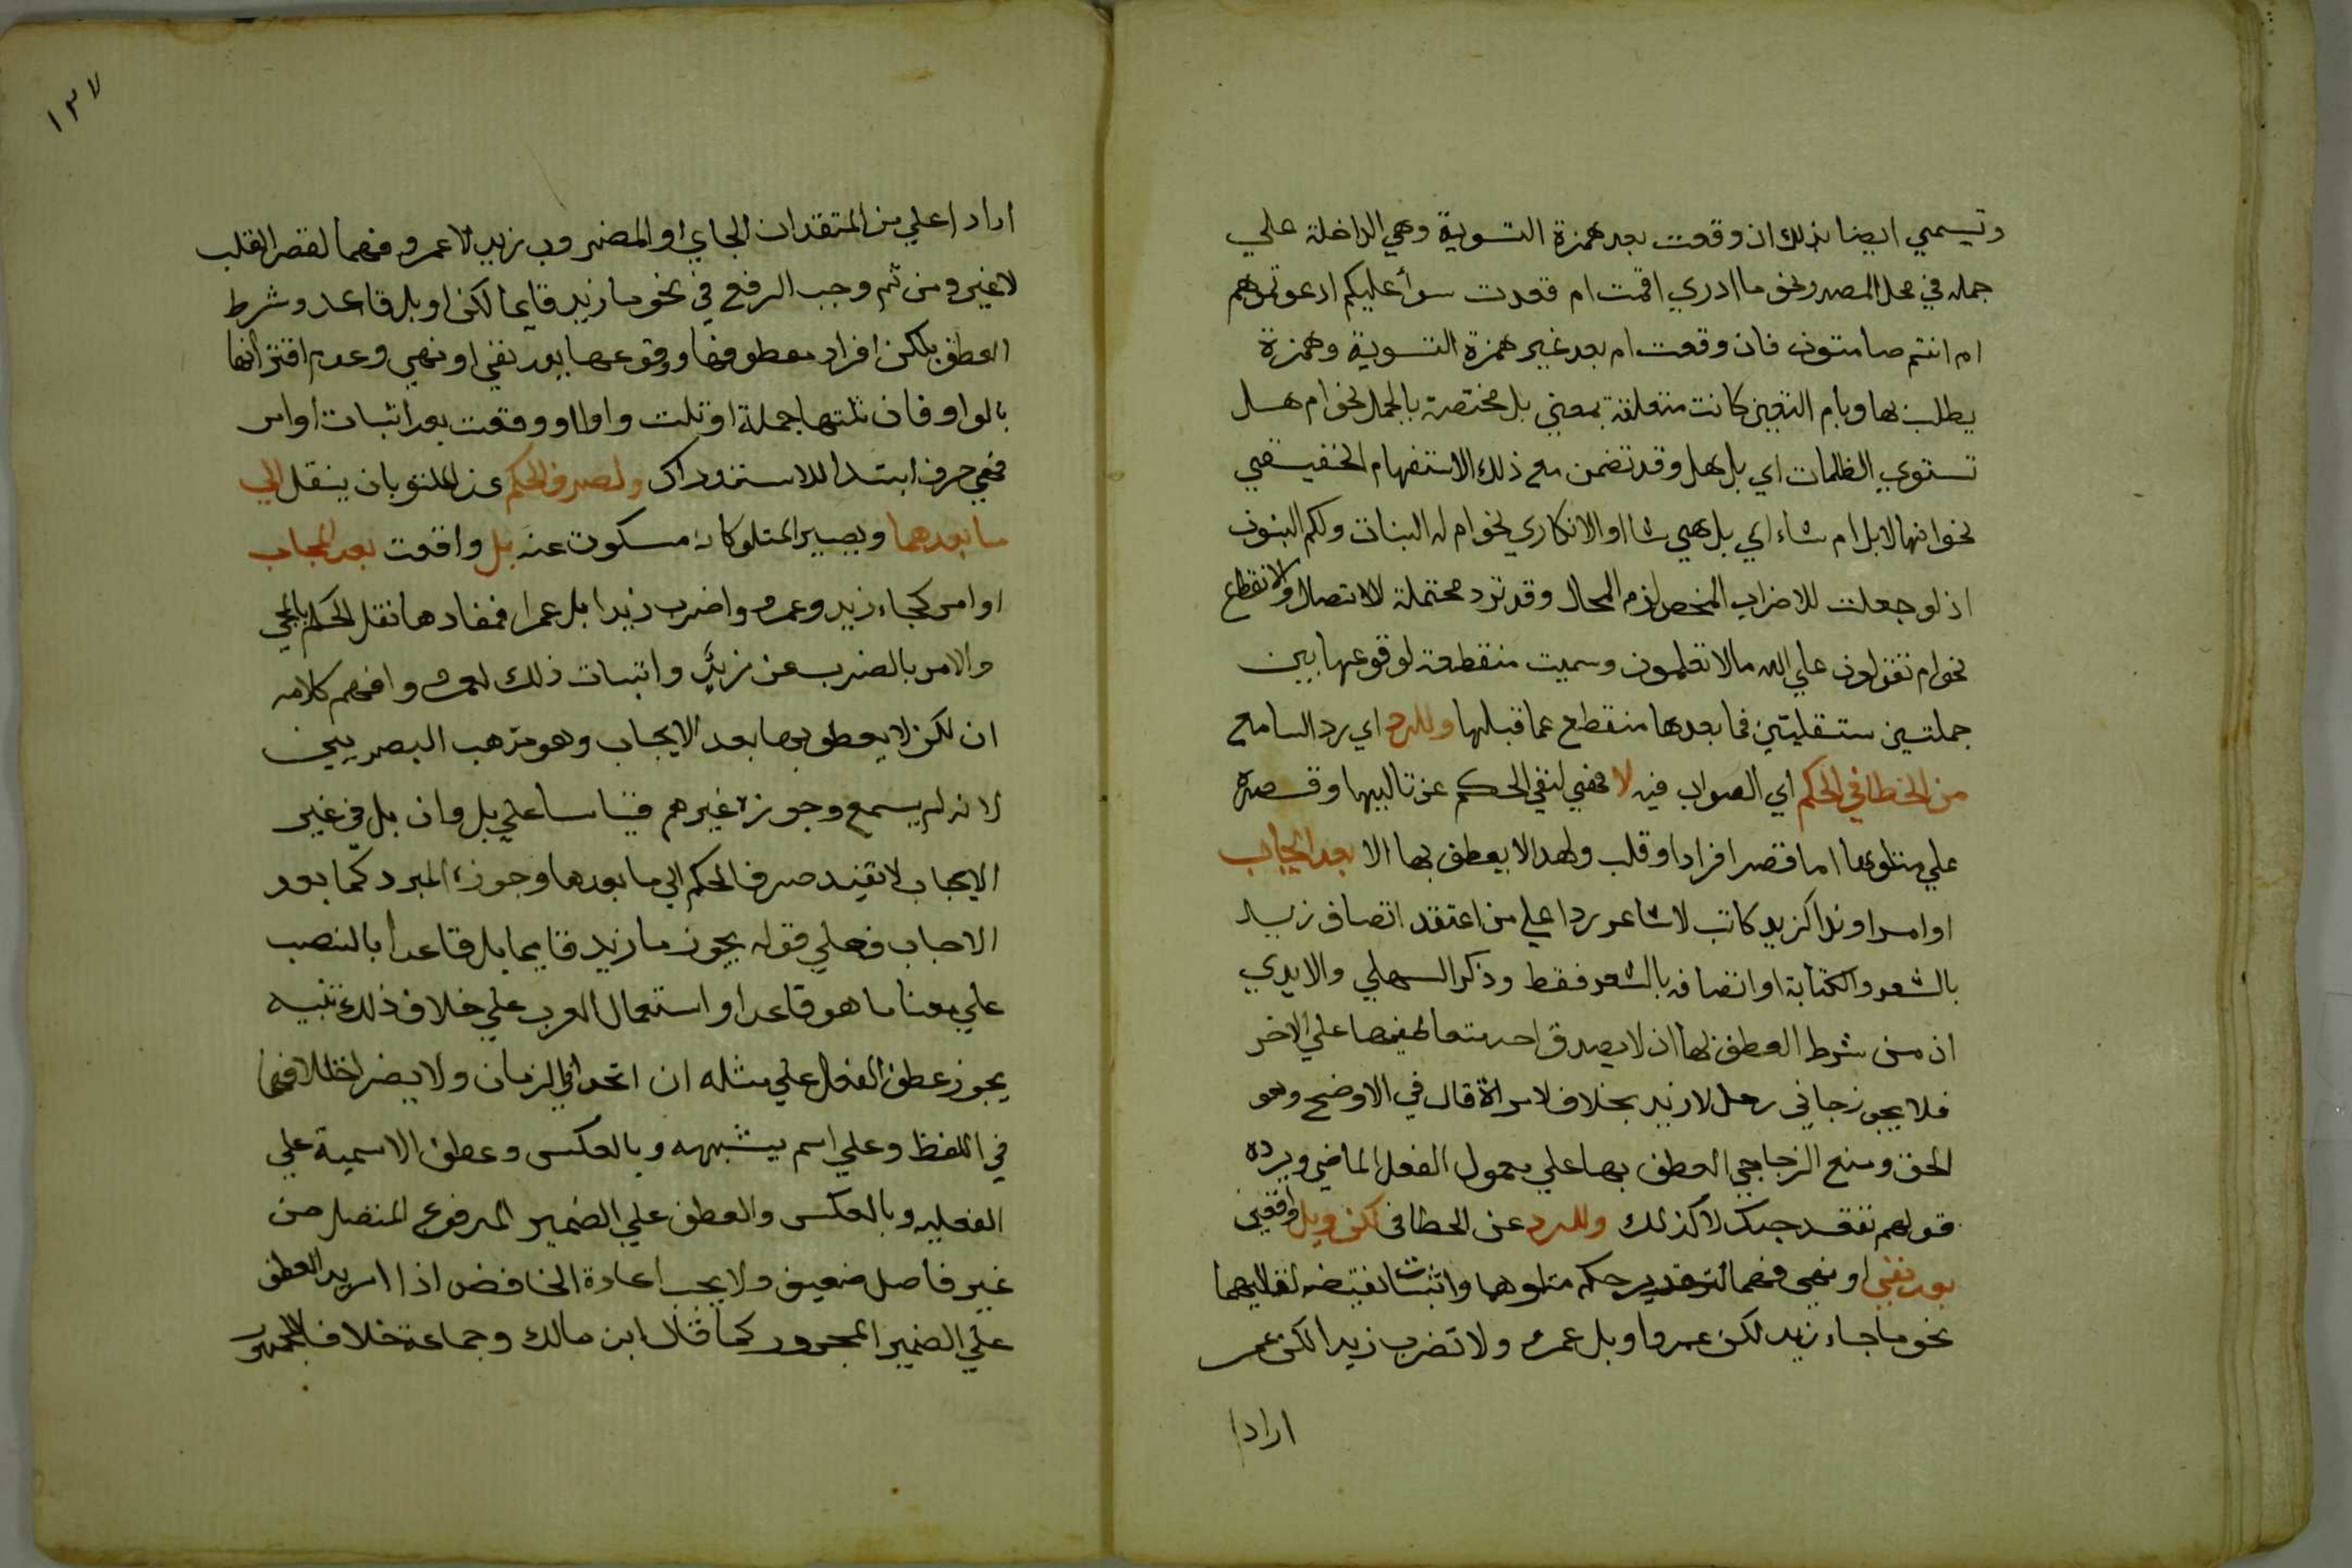 وتسمي ايضا بذلك ان وقعت بعد همزة التسوية وهي الداخلة علي
جمله في محل المصدر ونحو ما ادري اقمت ام قعدت سوأ عليكم ادعوتموهم
ام انتم صامتون فان وقعت ام بعد غير همزة التسوية وهمزة
يطلب بها وبام التعيين كانت منقطعة بمعني بل مختصة بالجمل نحو ام هل
تستوي الظلمات اي بل هل وقد تضمن مع ذلك الاستفهام الحقيقي
نحو انها لابل ام شاء اي بل هي شا او الانكاري نحو ام له البنات ولكم البنون
اذ لو جعلت للاضراب المحض لزم المحال وقد ترد محتملة للاتصال والانقطاع
نحو ام تقولون علي الله مالا تعلمون وسميت منقطعة لوقوعها بين
جملتين ستقليتين فما بعدها منقطع عما قبلها وللرد اي رد السامع
من الخطا في الحكم اي الصواب فيه لا فهي لنفي الحكم عن تاليها وقصره
علي متلوها اما قصر افرادا وقلب ولهذا لا يعطف بها الا بعد ايجاب
او امر او ندا كزيد كاتب لا شاعر ردا علي من اعتقد اتصاف زيد
بالشعر والكتابة او اتصافه بالشعر فقط وذكر السهلي والابدي
ان من شرط العطف بها ان لا يصدق احد متعاطفيها علي الاخر
فلا يجوز جاني رجل لا زيد بخلاف لا مراة قال في الاوضح وهو
الحق ومنع الزجاجي العطف بها علي معمول الفعل الماضي ويرده
قولهم نفعك جدك لا كدك وللرد عن الخطا في لكن وبل واقعتين
بعد نفي او نهي فهما لتقرير حكم متلوهما واثبات نقيضه لتاليهما
نحو ما جاء زيد لكن عمرو او بل عمرو ولا تضرب زيدا لكن عمر
ارادا
١٣٧
ارادا علي من المتقد ان الجاي او المضروب زيد لا عمرو فهما لقصر القلب
لا غير ومن ثم وجب الرفع في نحو ما زيد قايما لكن او بل قاعد وشرط
العطف بلكن افراد معطوفها ووقوعها بعد نفي او نهي وعدم اقترانها
بالواو فان تلتها جملة او تلت واوا او وقعت بعد اثبات او امر
فهي حرف ابتدا للاستدراك ولصرف الحكم عن المتلو بان ينقل الي
ما بعدهما ويصير المتلو كانه مسكوت عنه بل واقعت بعد ايجاب
او امر كجاء زيد وعمرو واضرب زيدا بل عمرا فمفادها نقل الحكم بالمجي
والامر بالضرب عن زيد واثبات ذلك لعمرو وافهم كلامه
ان لكن لا يعطف بها بعد الايجاب وهو مذهب البصريين
لانه لم يسمع وجوزه غيرهم قياسا علي بل وان بل في غير
الايجاب لا تفيد صرف الحكم الي ما بعدها وجوزه المبرد كما بعد
الاجاب فعلي قوله يجوز ما زيد قايما بل قاعدا بالنصب
علي معنا ما هو قاعدا واستعمال العرب علي خلاف ذلك تنبيه
يجوز عطف الفعل علي مثله ان اتحدا في الزمان ولا يضر اختلافهما
في اللفظ وعلي اسم يشبهه وبالعكس وعطف الاسمية علي
الفعليه وبالعكس والعطف علي الضمير المرفوع المتصل من
غير فاصل ضعيف ولا يجب اعادة الخافض اذا اريد العطف
علي الضمير المجرور كما قال ابن مالك وجماعة خلافا للجمهور